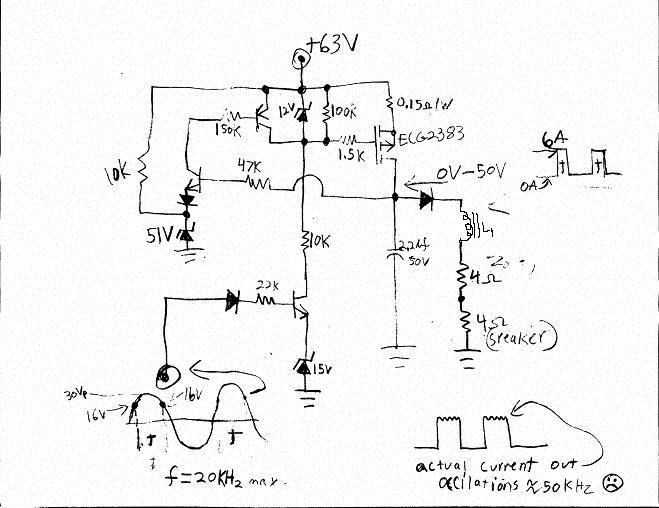 +63V
12V
100K
0.15Ω/W
150K
1.5K
ECG2383
6A
0A
T
10K
47K
0V-50V
51V
L1
10K
50V
4Ω
22K
4Ω
15V
30Vp
16V
16V
T
T
f=20KHz max.
actual current out
≈50KHz ☹